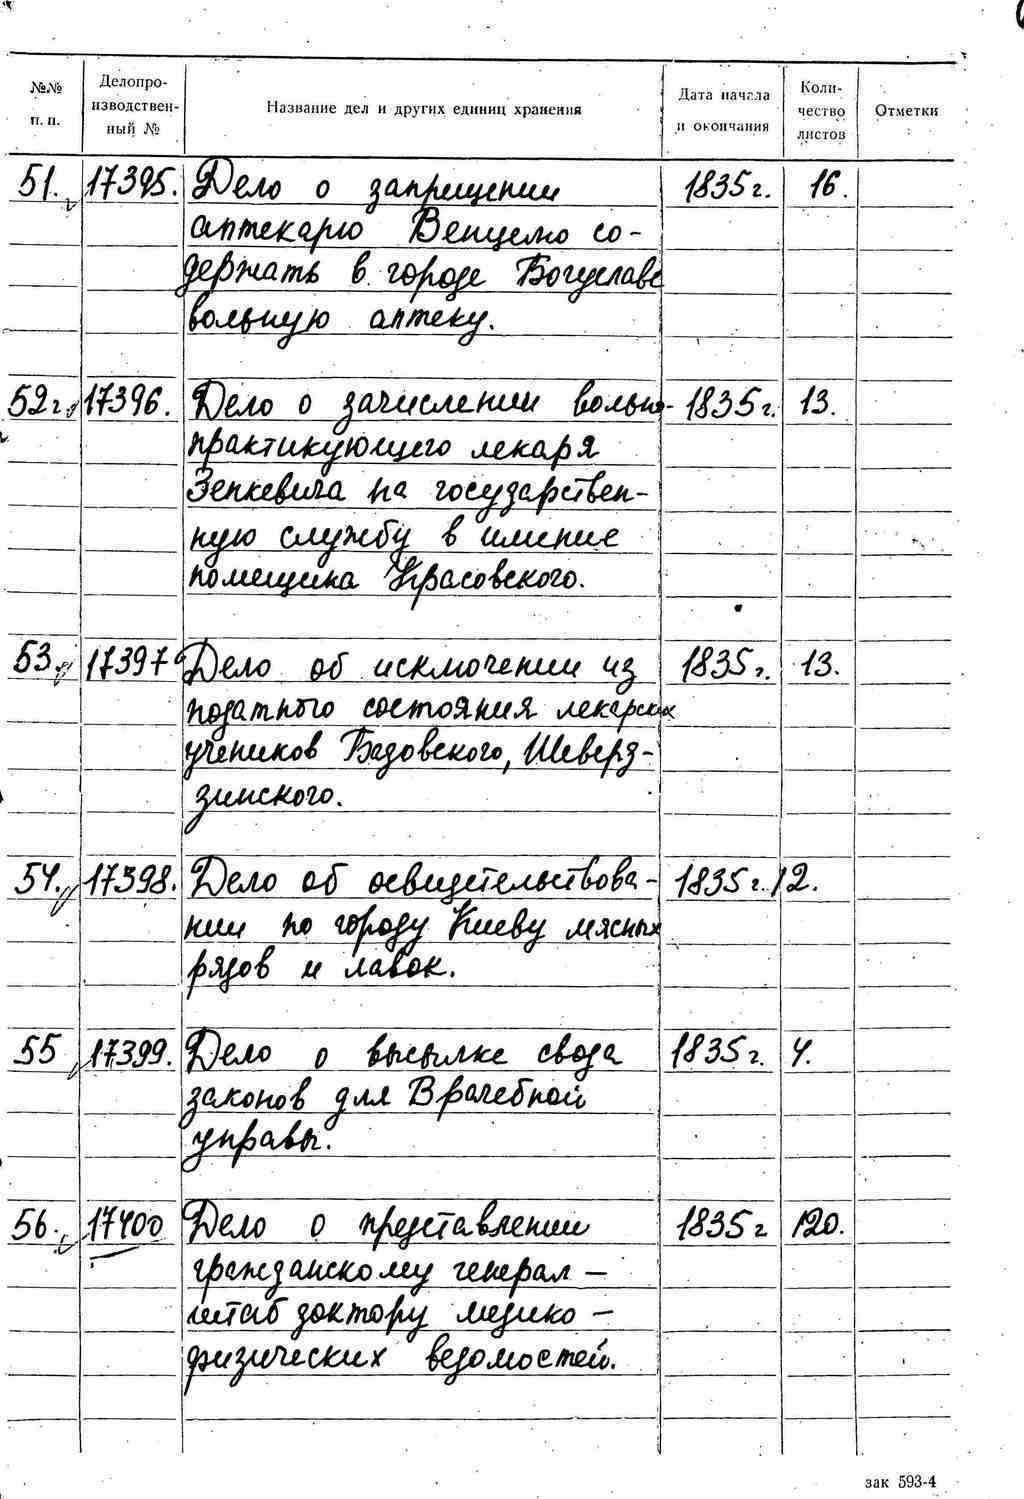 №№ п. п. Делопроизводственный № Название дел и других единиц хранения Дата начала и окончания Количество листов Отметки
51. 17395. Дело о запрещении 1835 г. 16.
аптекарю Венцелю со-
держать в городе Богуславе
вольную аптеку.
52 17396. Дело о зачислении вольно- 1835 г. 13.
практикующего лекаря
Зенкевича на государствен-
ную службу в имение
помещика Красовского.
53. 17397 Дело об исключении из 1835 г. 13.
податного состояния лекарских
учеников Бадовского, Шеверд-
зинского.
54. 17398. Дело об освидетельствова- 1835 г. 12.
нии по городу Киеву мясных
рядов и лавок.
55 17399. Дело о высылке свода 1835 г. 4.
законов для Врачебной
управы.
56. 17400 Дело о представлении 1835 г 120.
гражданскому генерал-
штаб доктору медико-
физических ведомостей.
зак 593-4